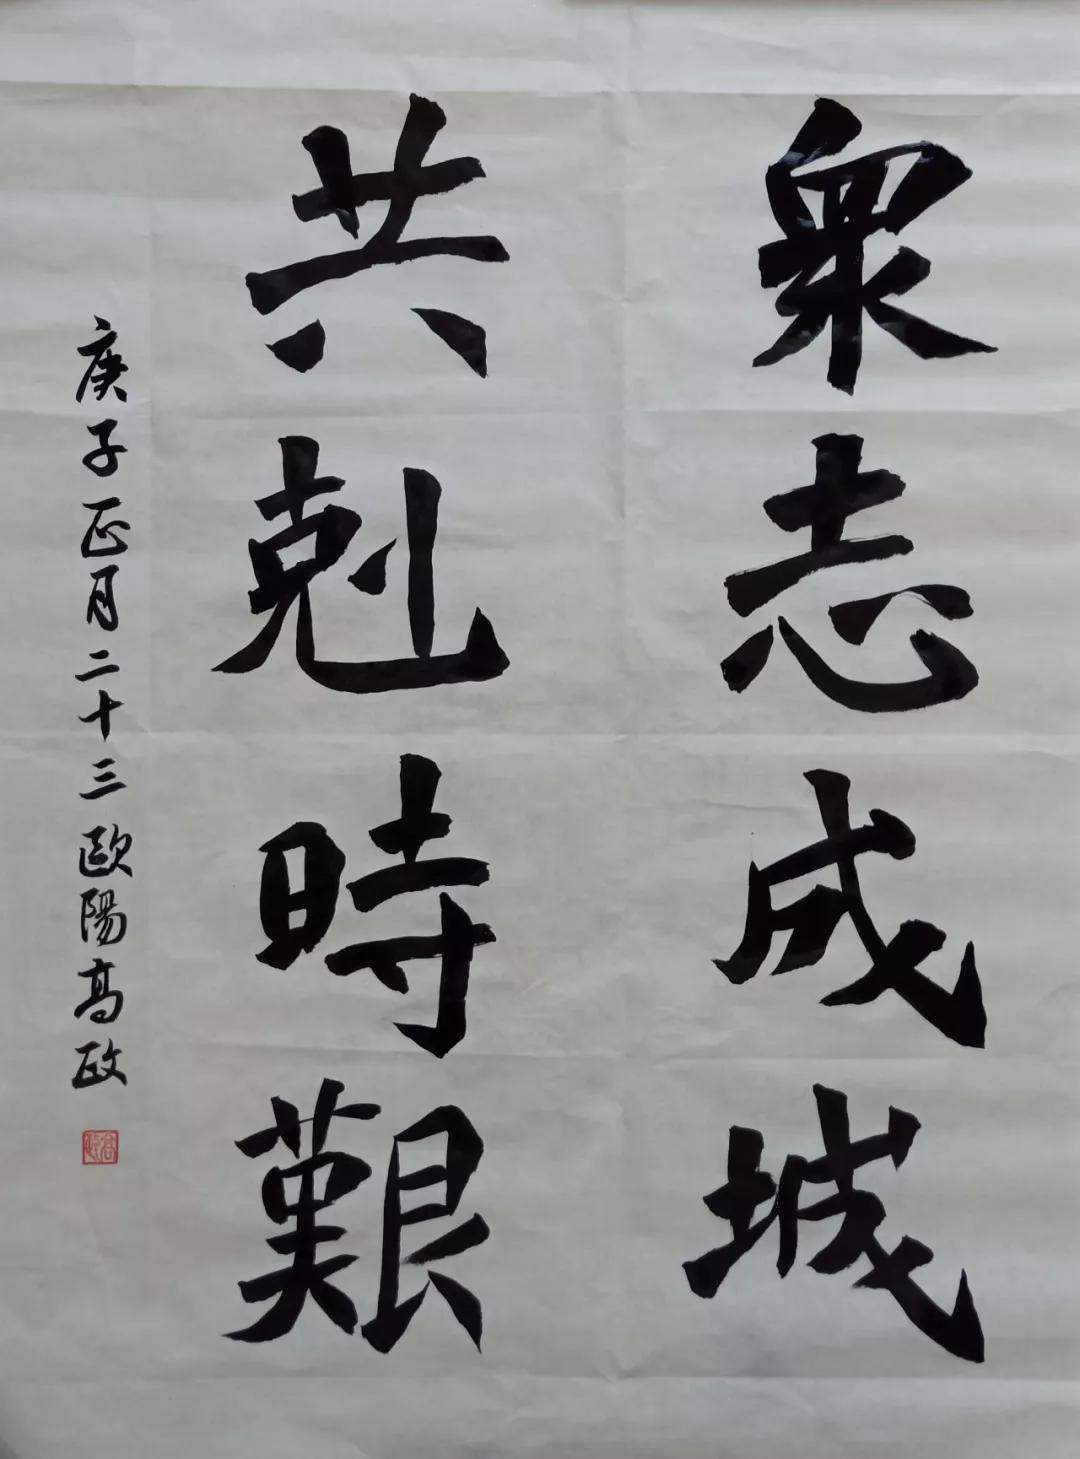 眾志成城
共剋時艱
庚子正月二十三歐陽高政